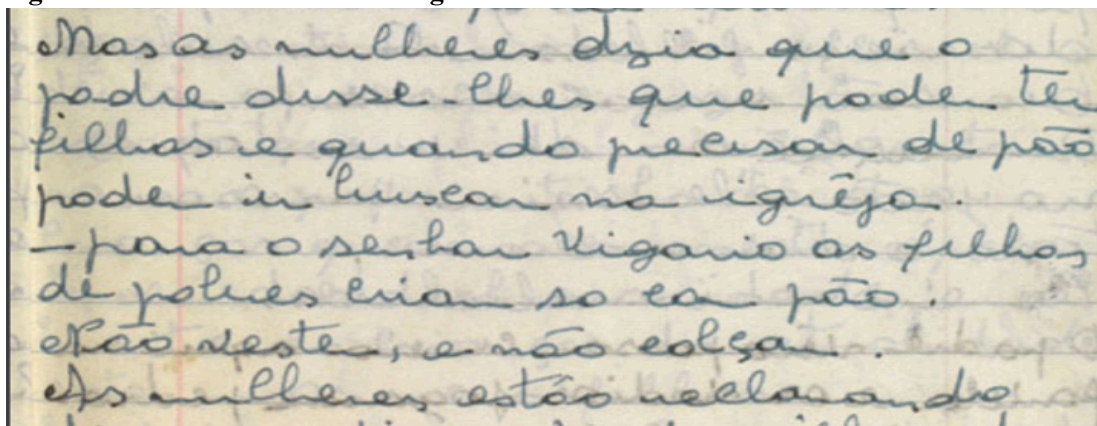 Mas as mulheres dzia que o
padre disse-lhes que poden ter
filhos e quando precisar de pão
poden ir buscar na igrêja.
— para o senhor Vigario os filhos
de pobres criam so com pão.
Não vesten, e não calçam.
As mulheres estão reclamando